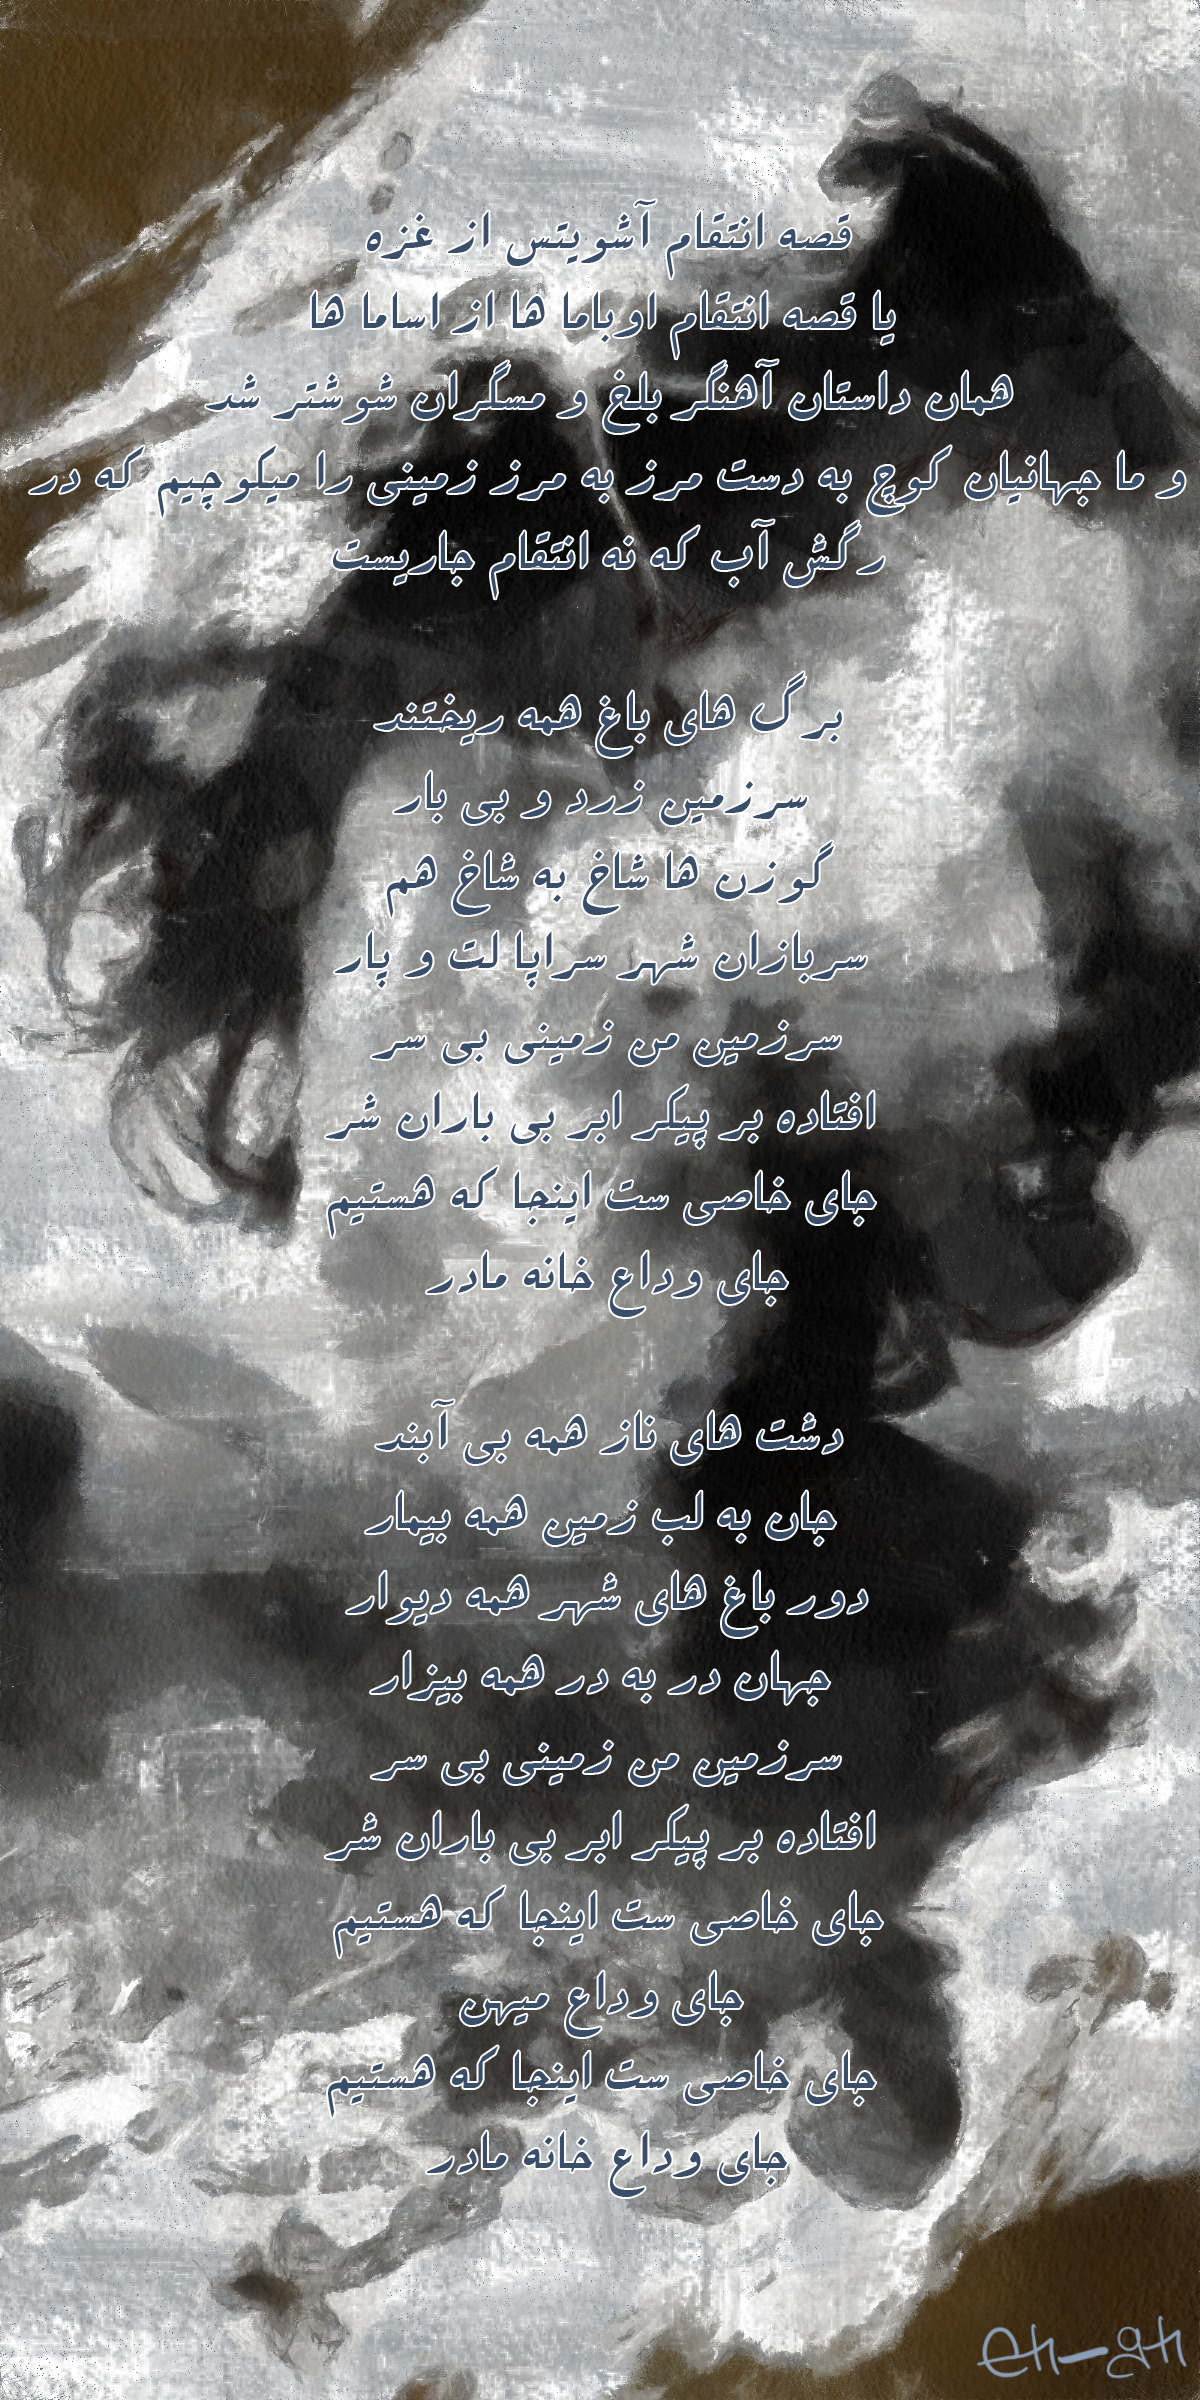 قصه انتقام آشویتس از غزه
یا قصه انتقام اوباما ها از اساما ها
همان داستان آهنگر بلخ و مسگران شوشتر شد
و ما جهانیان کوچ به دست مرز به مرز زمینی را میکوچیم که در
رگش آب که نه انتقام جاریست
برگ های باغ همه ریختند
سرزمین زرد و بی بار
گوزن ها شاخ به شاخ هم
سربازان شهر سراپا لت و پار
سرزمین من زمینی بی سر
افتاده بر پیکر ابر بی باران شر
جای خاصی ست اینجا که هستیم
جای وداع خانه مادر
دشت های ناز همه بی آبند
جان به لب زمین همه بیمار
دور باغ های شهر همه دیوار
جهان در به در همه بیزار
سرزمین من زمینی بی سر
افتاده بر پیکر ابر بی باران شر
جای خاصی ست اینجا که هستیم
جای وداع میهن
جای خاصی ست اینجا که هستیم
جای وداع خانه مادر